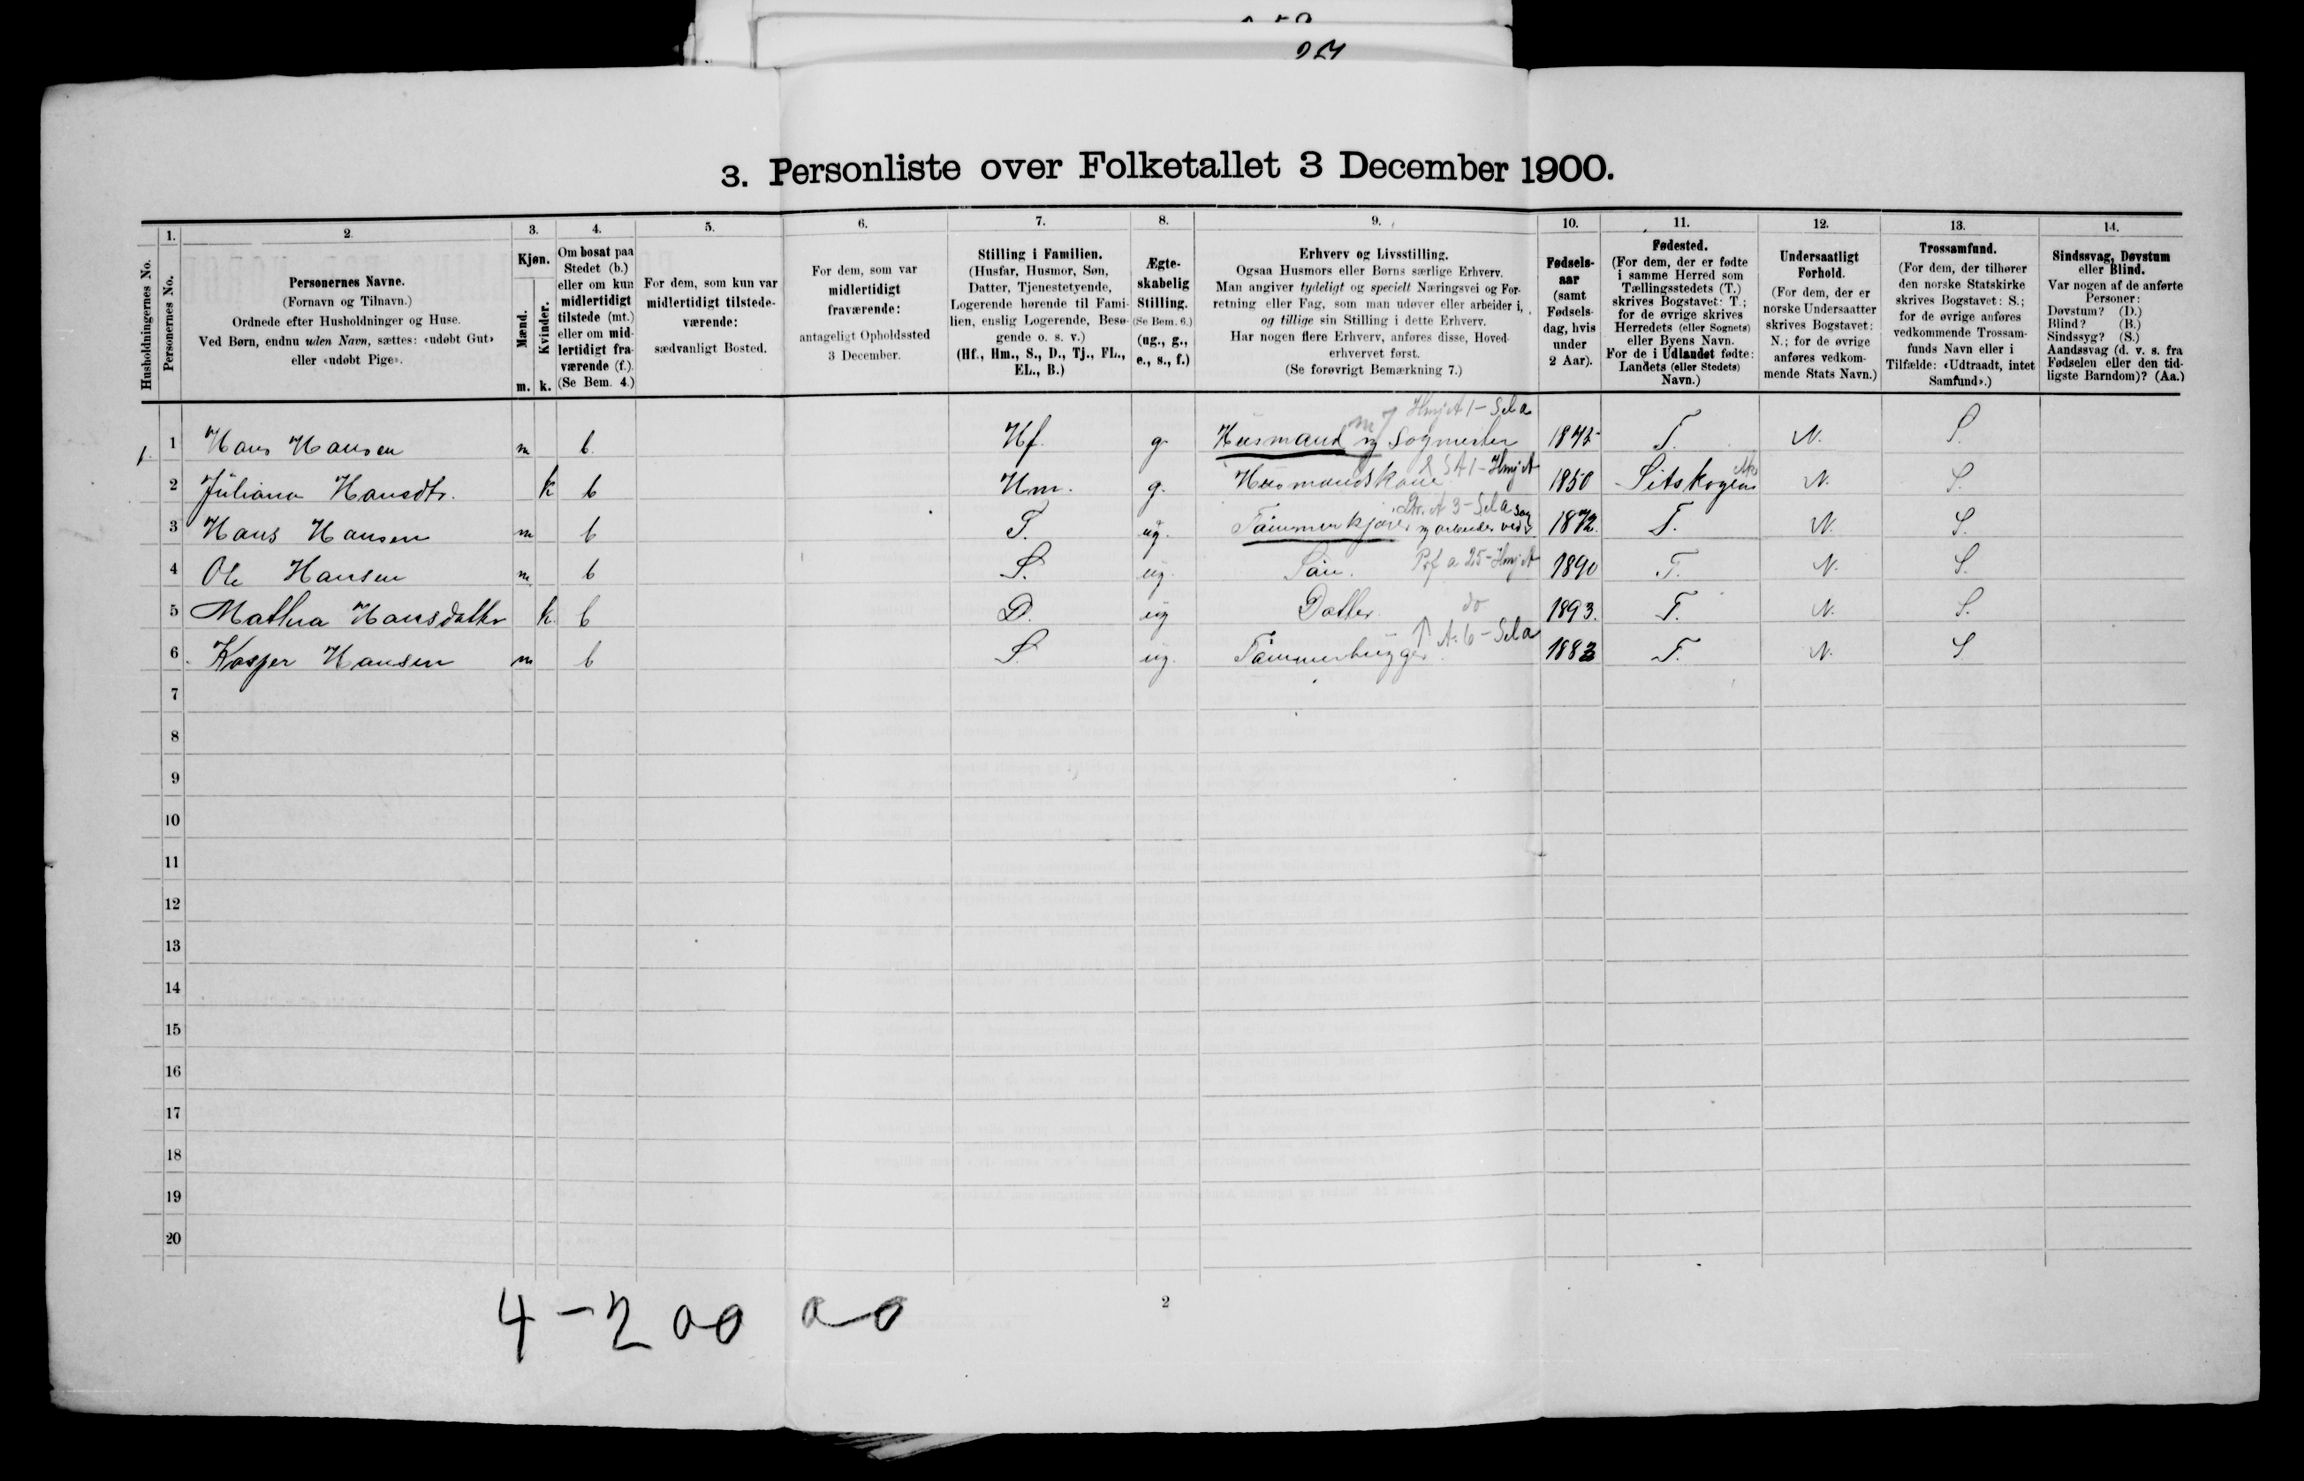 3. Personliste over Folketallet 3 December 1900.
Husholdningernes No.
1.
Personernes No.
2.
Personernes Navne.
(Fornavn og Tilnavn.)
Ordnede efter Husholdninger og Huse.
Ved Børn, endnu uden Navn, sættes: «udøbt Gut»
eller «udøbt Pige».
3.
Kjøn.
Mænd.
Kvinder.
m. k.
4.
Om bosat paa
Stedet (b.)
eller om kun
midlertidigt
tilstede (mt.)
eller om mid-
lertidigt fra-
værende (f.).
(Se Bem. 4.)
5.
For dem, som kun var
midlertidigt tilstede-
værende:
sædvanligt Bosted.
6.
For dem, som var
midlertidigt
fraværende:
antageligt Opholdssted
3 December.
7.
Stilling i Familien.
(Husfar, Husmor, Søn,
Datter, Tjenestetyende,
Logerende hørende til Fami-
lien, enslig Logerende, Besø-
gende o. s. v.)
(Hf., Hm., S., D., Tj., FL.,
EL., B.)
8.
Ægte-
skabelig
Stilling.
(Se Bem. 6.)
(ug., g.,
e., s., f.)
9.
Erhverv og Livsstilling.
Ogsaa Husmors eller Børns særlige Erhverv.
Man angiver tydeligt og specielt Næringsvei og For-
retning eller Fag, som man udøver eller arbeider i,
og tillige sin Stilling i dette Erhverv.
Har nogen flere Erhverv, anføres disse, Hoved-
erhvervet først.
(Se forøvrigt Bemærkning 7.)
10.
Fødsels-
aar
(samt
Fødsels-
dag, hvis
under
2 Aar).
11.
Fødested.
(For dem, der er fødte
i samme Herred som
Tællingsstedets (T.)
skrives Bogstavet: T.;
for de øvrige skrives
Herredets (eller Sognets)
eller Byens Navn.
For de i Udlandet fødte:
Landets (eller Stedets)
Navn.)
12.
Undersaatligt
Forhold.
(For dem, der er
norske Undersaatter
skrives Bogstavet:
N.; for de øvrige
anføres vedkom-
mende Stats Navn.)
13.
Trossamfund.
(For dem, der tilhører
den norske Statskirke
skrives Bogstavet: S.;
for de øvrige anføres
vedkommende Trossam-
funds Navn eller i
Tilfælde: «Udtraadt, intet
Samfund».)
14.
Sindssvag, Døvstum
eller Blind.
Var nogen af de anførte
Personer:
Døvstum? (D.)
Blind? (B.)
Sindssyg? (S.)
Aandssvag (d. v. s. fra
Fødselen eller den tid-
ligste Barndom)? (Aa.)
Hmj A 1 - Sela
1 1 Hans Hansen m b. Hf. g. Husmand og Sagmester T. N. S.
2 Juliana Hansdtr. k b Hm. g. Husmandskone 1850 Sitskogen N. S.
3 Hans Hansen m b S. ug. Tømmerkjører og arbeider ved Sag 1872. T. N. S.
4 Ole Hansen m b S. ug. Søn. 1890 T. N. S.
5 Mathea Hansdatter k. b D. ug Datter. do 1893. T. N. S.
6 Kasper Hansen m b S. ug. Tømmerhugger. A. 6 - Sela 1883 T. N. S.
7
8
9
10
11
12
13
14
15
16
17
18
19
20
2
4 - 2 00 00